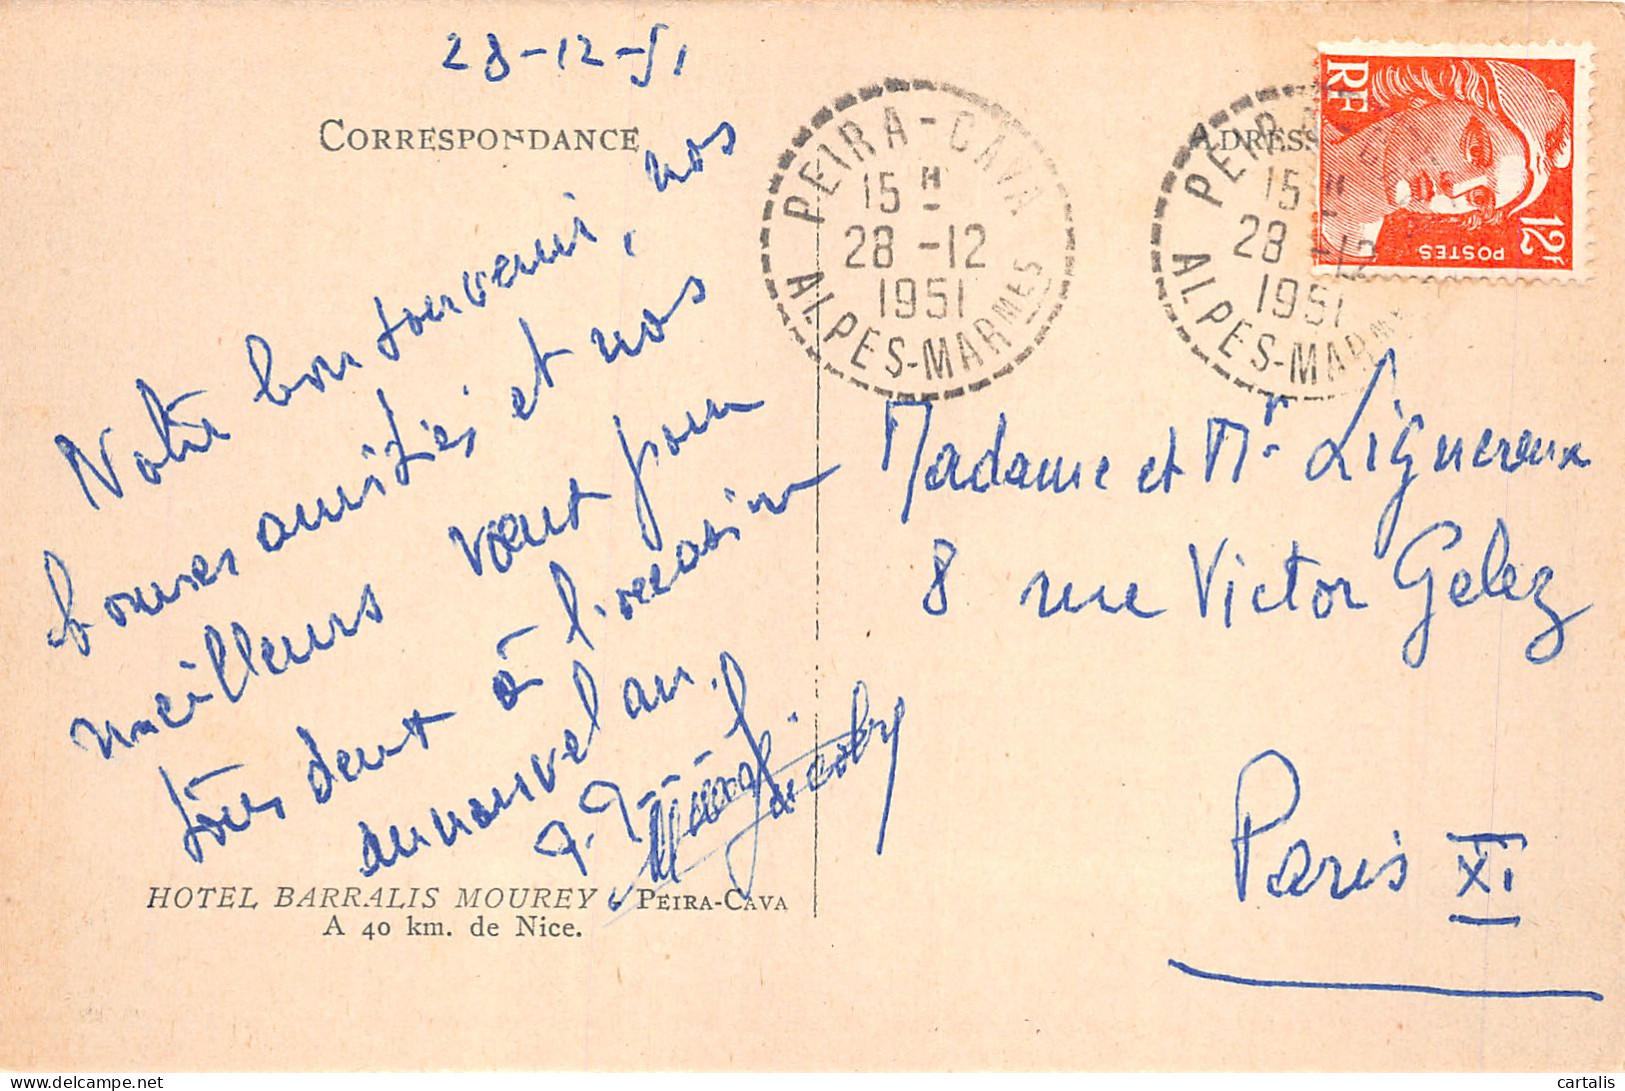 28-12-51
CORRESPONDANCE
Notre bon souvenir, nos
bonnes amitiés et nos
meilleurs vœux pour
tous deux à l'occasion
du nouvel an.
HOTEL BARRALIS MOUREY - PEIRA-CAVA
A 40 km. de Nice.
PEIRA-CAVA
15 H
28-12
1951
ALPES-MARMES
ADRESS
PEIRA
15 H
28-12
1951
ALPES-MARME
RF
POSTES
12F
Madame et Mr Lignereux
8 rue Victor Gelez
Paris XI
cartalis